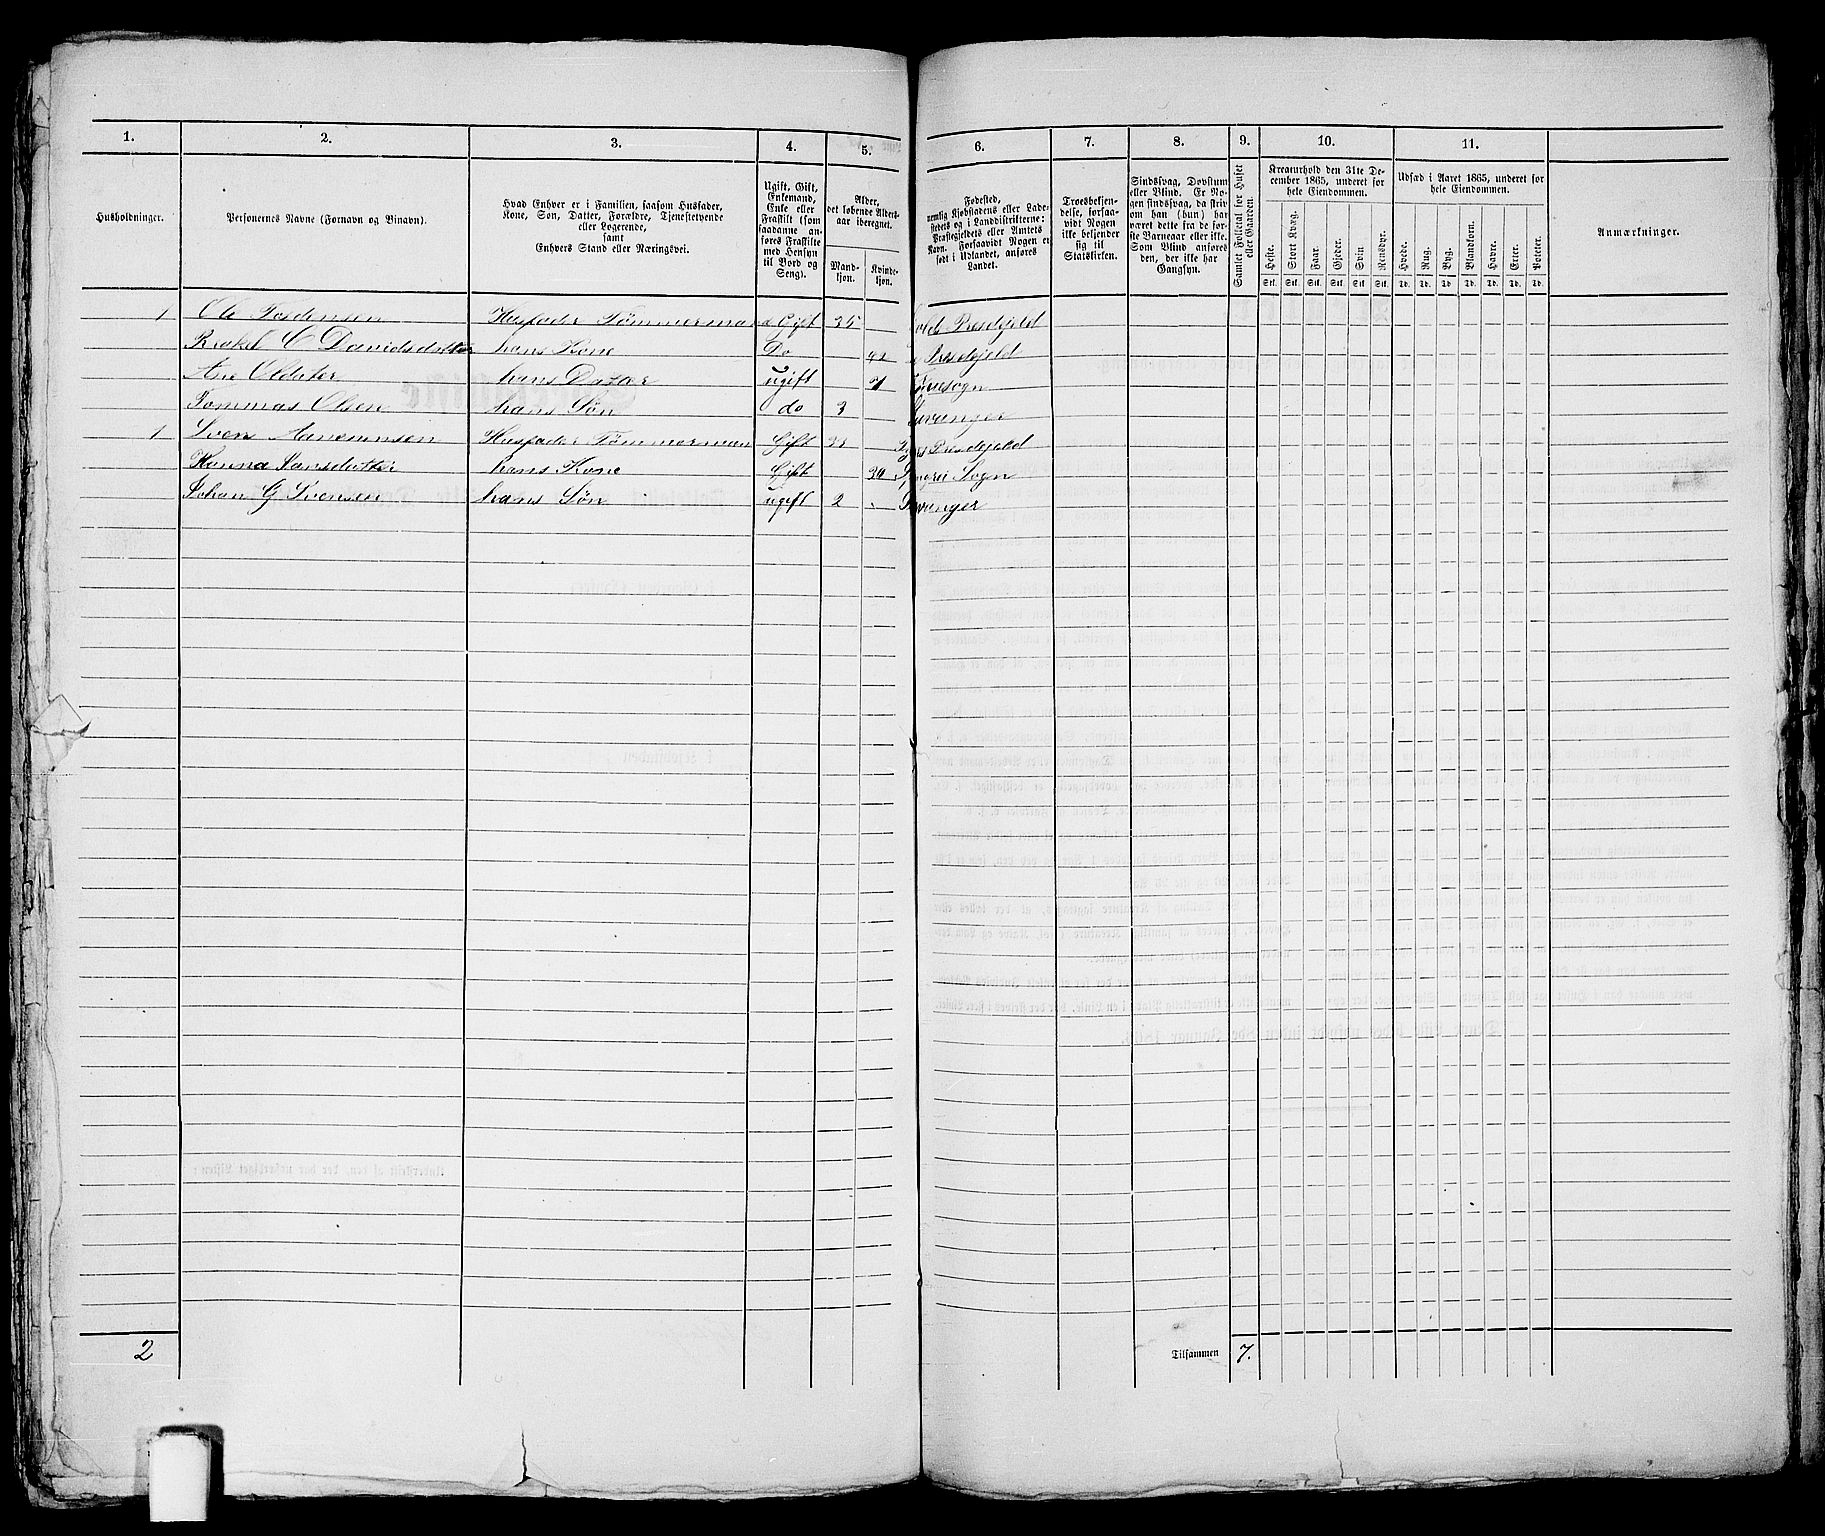 1. 2. 3. 4. 5. 6. 7. 8. 9. 10. 11.
Husholdninger.
Personernes Navne (Fornavn og Binavn).
Hvad Enhver er i Familien, saasom Husfader,
Kone, Søn, Datter, Forældre, Tjenestetyende
eller Logerende,
samt
Enhvers Stand eller Næringsvei.
Ugift, Gift,
Enkemand,
Enke eller
Fraskilt (som
saadanne an-
føres Fraskilte
med Hensyn
til Bord og
Seng).
Alder,
det løbende Alders-
aar iberegnet.
Mand-
kjøn.
Kvinde-
kjøn.
Fødested,
nemlig Kjøbstadens eller Lade-
stedets og i Landdistrikterne:
Præstegjeldets eller Amtets
Navn. Forsaavidt Nogen er
født i Udlandet, anføres
Landet.
Troesbekjen-
delse, forsaa-
vidt Nogen
ikke bekjender
sig til
Statskirken.
Sindssvag, Døvstum
eller Blind. Er No-
gen sindssvag, da skriv
om han (hun) har
været dette fra de før-
ste Barneaar eller ikke.
Som Blind anføres
den, der ikke har
Gangsyn.
Samlet Folketal for Huset
eller Gaarden.
Kreaturhold den 31te De-
cember 1865, underet for
hele Eiendommen.
Heste. Stort Kvæg. Faar. Gjeder. Svin Rensdyr.
Stk. Stk. Stk. Stk. Stk. Stk.
Udsæd i Aaret 1865, underet for
hele Eiendommen.
Hvede. Rug. Byg. Blandkorn. Havre. Erter. Poteter.
Td. Td. Td. Td. Td. Td. Td.
Anmærkninger.
1 Ole Husfader Tømmermand Gift 35 Presdgjeld
Rakel C Davidsdatter hans Kone Do Presdgjeld
Ane hans Datter ugift
Tommas Olsen hans Søn do 3
1 Sven Husfader Tømmerman Gift Presdgjeld
hans Kone Gift Sogn
Johan G Svensen hans Søn ugift 2
2 Tilsammen 7.